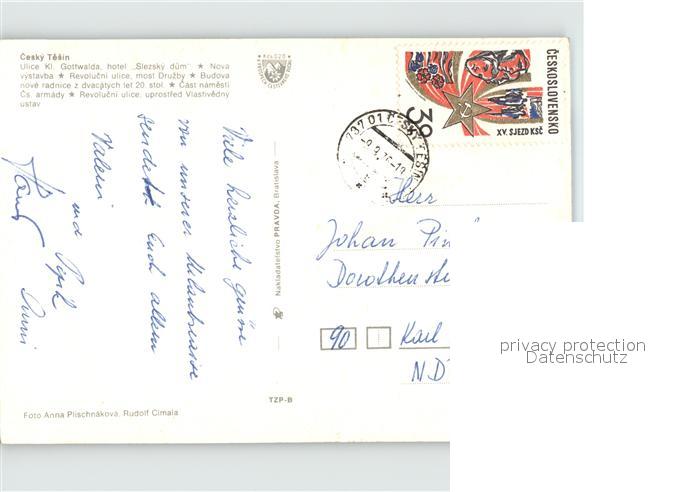 Český Těšín
Ulice Kl. Gottwalda, hotel „Slezský dům" ★ Nová
výstavba ★ Revoluční ulice, most Družby ★ Budova
nové radnice z dvacátých let 20. stol. ★ Část náměstí
Čs. armády ★ Revoluční ulice, uprostřed Vlastivědný
ústav
ČESKOSLOVENSKO
XV. SJEZD KSČ
737 01 ČESKÝ TĚŠÍN
Viele herzliche Grüsse
von unserer Urlaubsreise
sendet Euch allen
Valeri und
Nakladatelství PRAVDA, Bratislava
Herr
Johan
90
Karl
ND
TZP-B
Foto Anna Plischnáková, Rudolf Cimala
privacy protection
Datenschutz